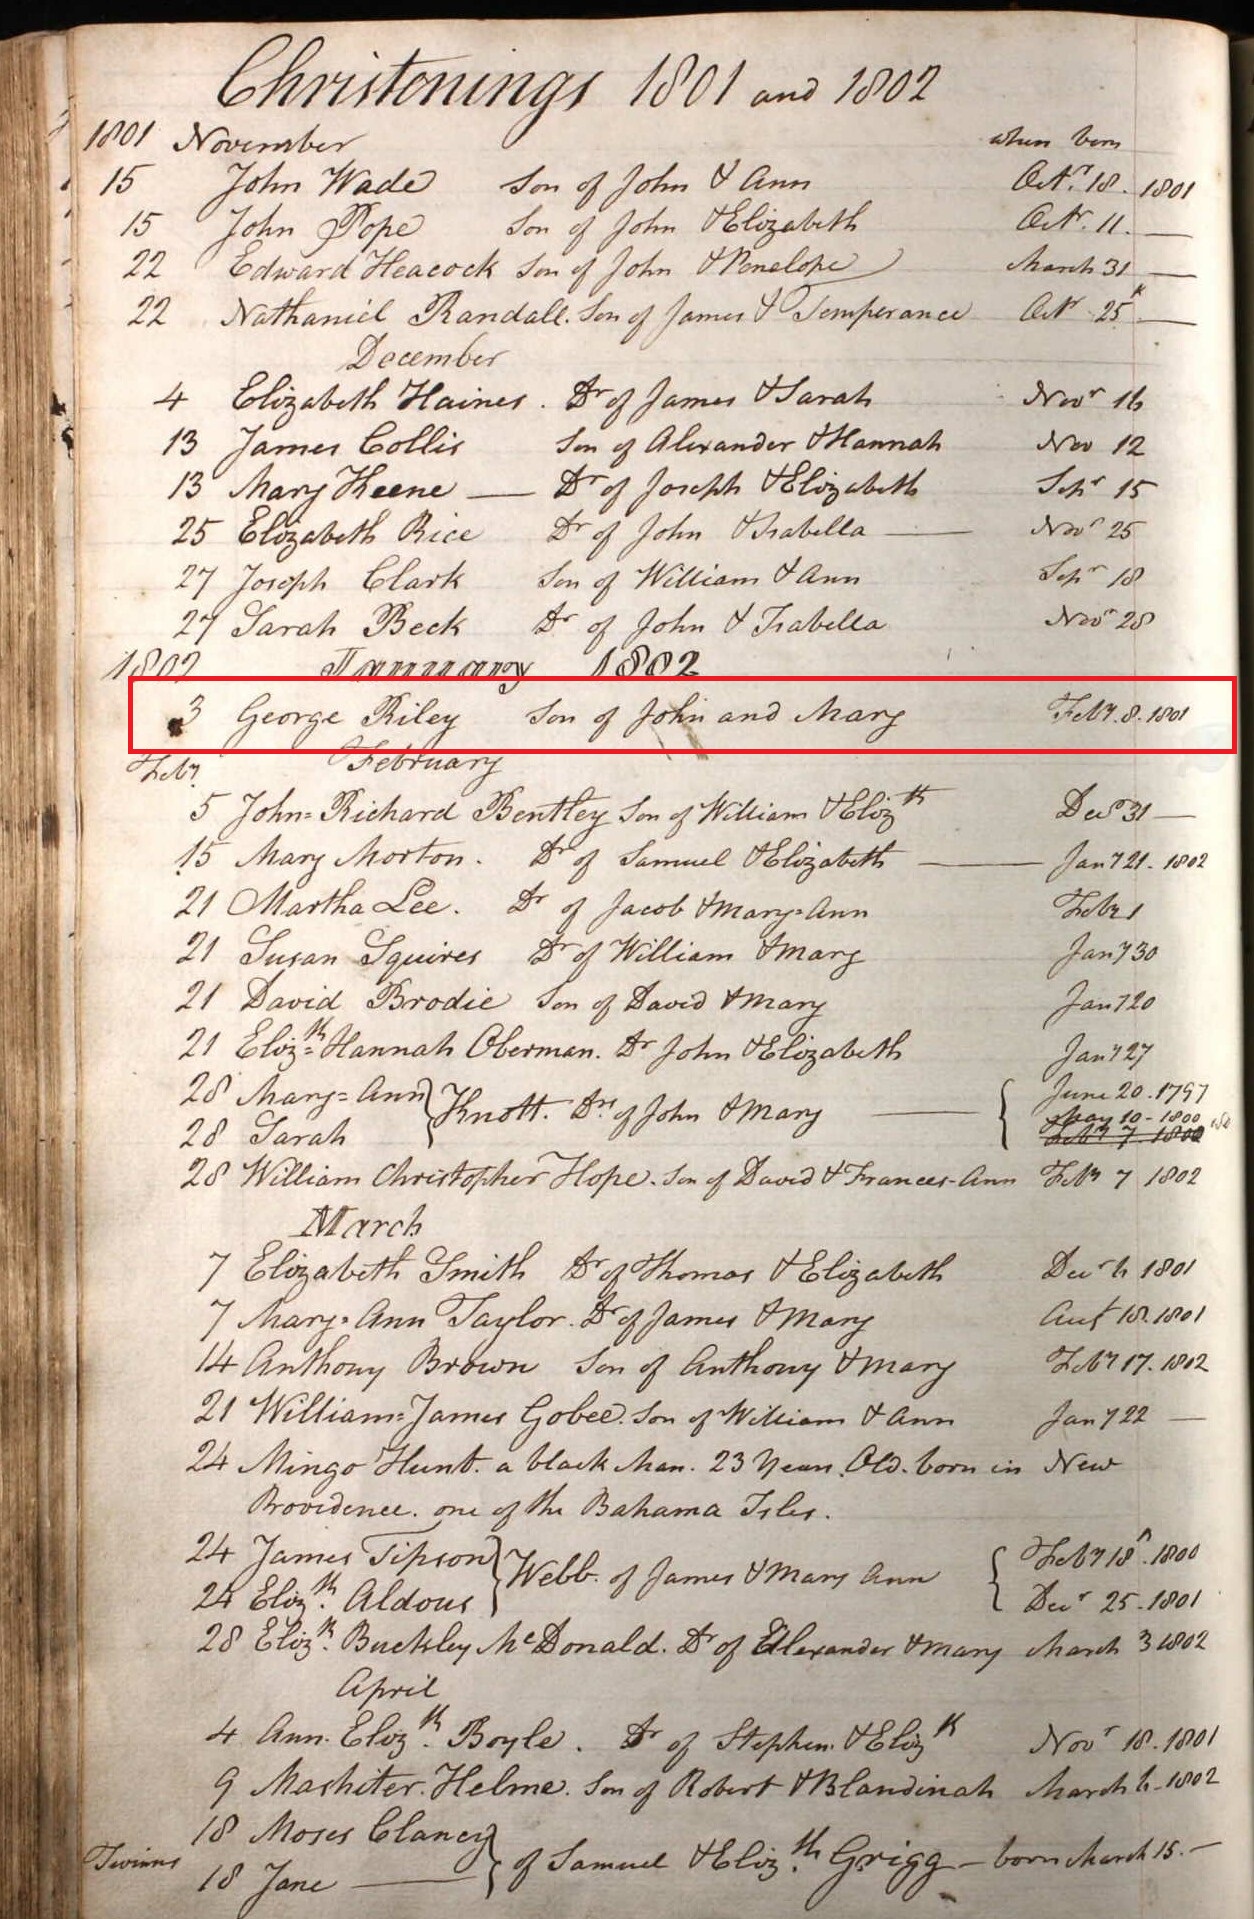 Christenings 1801 and 1802
1801 November when born
15 John Wade Son of John & Ann Octr. 18. 1801
15 John Pope Son of John & Elizabeth Octr. 11. —
22 Edward Heacock Son of John & Penelope March 31 —
22 Nathaniel Randall. Son of James & Temperance Octr 25 —
December
4 Elizabeth Haines. Dr of James & Sarah Novr 16
13 James Collis Son of Alexander & Hannah Nov 12
13 Mary Keene — Dr of Joseph & Elizabeth Sepr 15
25 Elizabeth Rice Dr of John & Isabella — Novr 25
27 Joseph Clark Son of William & Ann Sepr 18
27 Sarah Beck Dr of John & Isabella Novr 28
1802 January 1802
3 George Riley Son of John and Mary Feby. 8. 1801
Feby. February
5 John=Richard Bentley Son of William & Elizth Decr 31 —
15 Mary Morton. Dr of Samuel & Elizabeth — Jany 21. 1802
21 Martha Lee. Dr of Jacob & Mary=Ann Feby 1
21 Susan Squires Dr of William & Mary Jany 30
21 David Brodie Son of David & Mary Jany 20
21 Elizth=Hannah Oberman. Dr John & Elizabeth Jany 27
28 Mary=Ann } Knott. Drs. of John & Mary — { June 20. 1797
28 Sarah May 10-1800
Feby 7 1800
28 William Christopher Hope. Son of David & Frances-Ann Feby 7 1802
March
7 Elizabeth Smith Dr of Thomas & Elizabeth Decr 6 1801
7 Mary=Ann Taylor. Dr of James & Mary Augt 18. 1801
14 Anthony Brown Son of Anthony & Mary Feby 17. 1802
21 William=James Gobee. Son of William & Ann Jany 22 —
24 Mingo Hunt. a black Man. 23 Years Old. born in New
Providence. one of the Bahama Isles.
24 James Tipson } Webb. of James & Mary Ann { Feby 18. 1800
24 Elizth. Aldous Decr 25-1801
28 Elizth. Bucksley McDonald. Dr of Alexander & Mary March 3 1802
April
4 Ann. Elizth. Boyle. Dr of Stephen & Elizth Novr 18. 1801
9 Mashiter. Helme. Son of Robert & Blandinah March 6-1802
18 Moses Clancy
Twinns } of Samuel & Elizth. Grigg — born March 15. —
18 Jane —